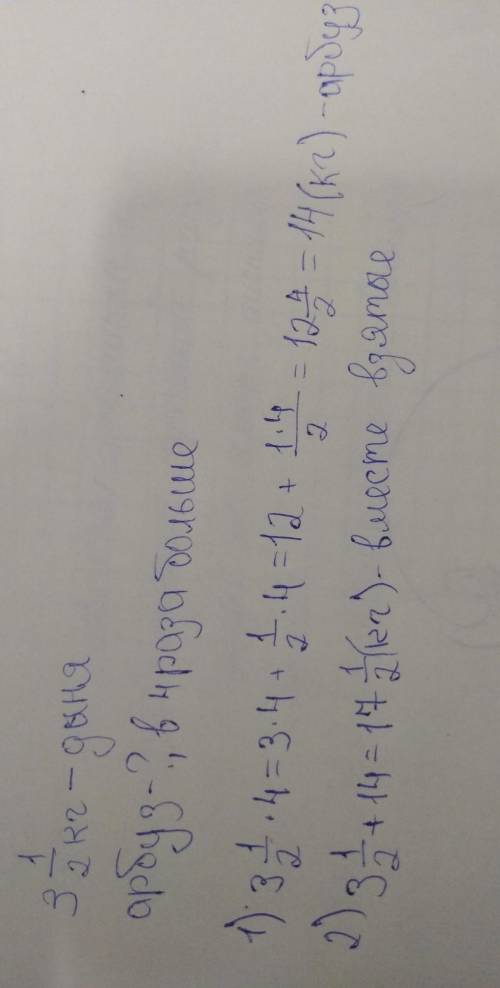 3 1/2 кг – дыня
арбуз – ?, в 4 раза больше
1) 3 1/2 · 4 = 3 · 4 + 1/2 · 4 = 12 + 1·4/2 = 12 4/2 = 14 (кг) – арбуз
2) 3 1/2 + 14 = 17 1/2 (кг) – вместе взятые